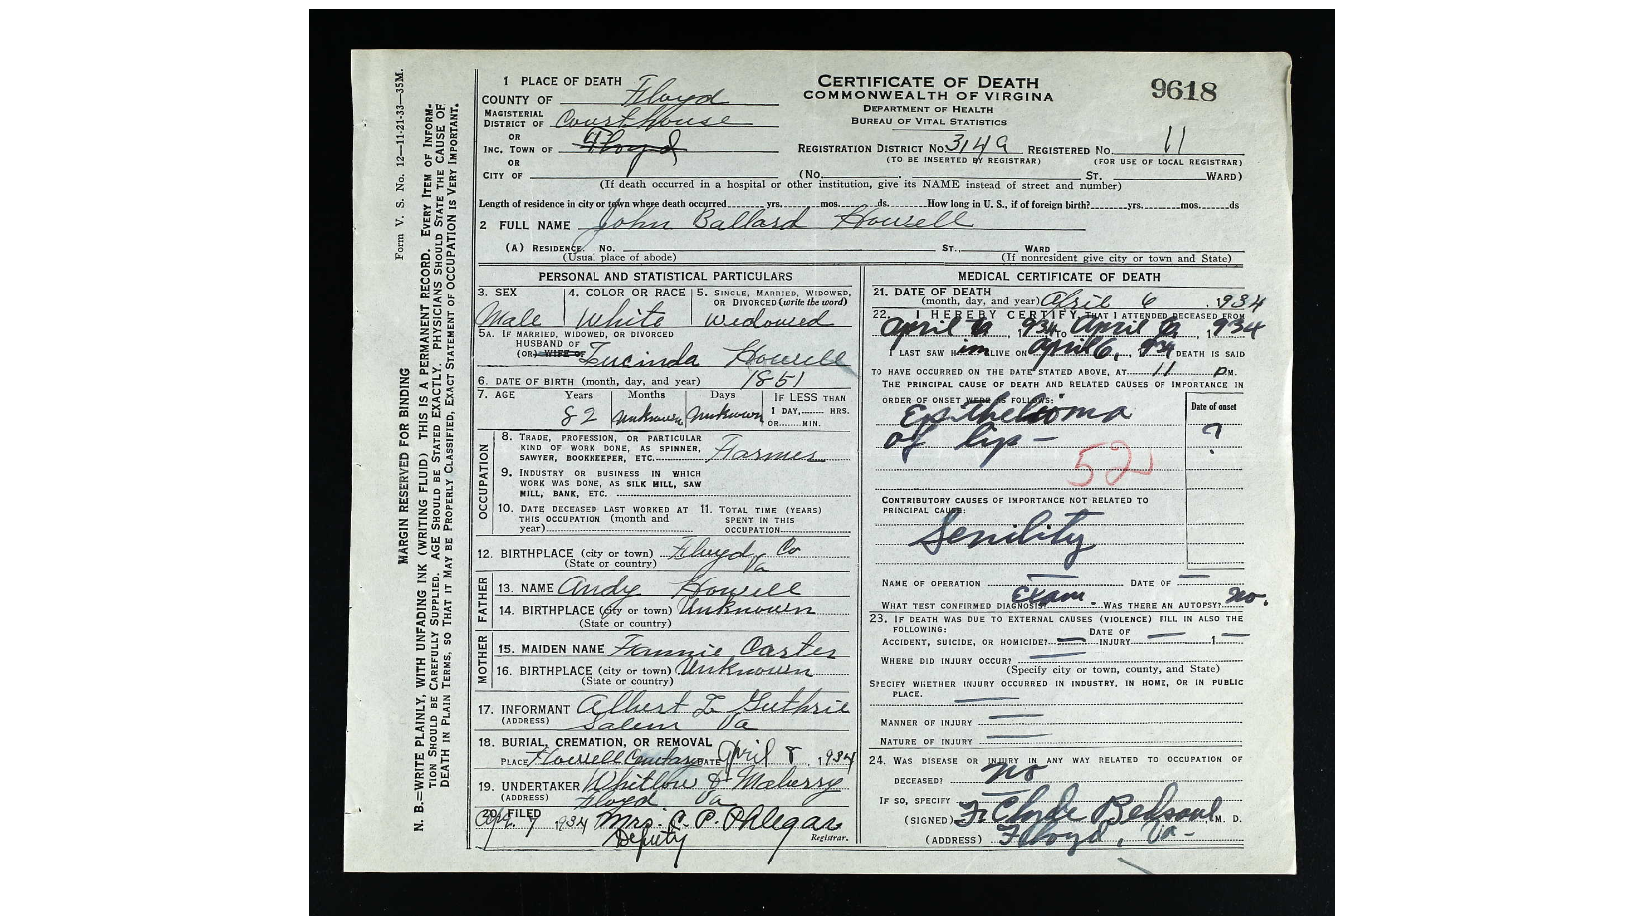 Form V. S. No. 12—11-21-33—35M.
MARGIN RESERVED FOR BINDING
N. B.=WRITE PLAINLY, WITH UNFADING INK (WRITING FLUID) THIS IS A PERMANENT RECORD. EVERY ITEM OF INFORM-
TION SHOULD BE CAREFULLY SUPPLIED. AGE SHOULD BE STATED EXACTLY. PHYSICIANS SHOULD STATE THE CAUSE OF
DEATH IN PLAIN TERMS, SO THAT IT MAY BE PROPERLY CLASSIFIED, EXACT STATEMENT OF OCCUPATION IS VERY IMPORTANT.
1 PLACE OF DEATH
COUNTY OF Floyd
MAGISTERIAL
DISTRICT OF Court House
OR
INC. TOWN OF Floyd
OR
CITY OF
CERTIFICATE OF DEATH
COMMONWEALTH OF VIRGINIA
DEPARTMENT OF HEALTH
BUREAU OF VITAL STATISTICS
9618
REGISTRATION DISTRICT NO. 314a REGISTERED NO. 11
(TO BE INSERTED BY REGISTRAR) (FOR USE OF LOCAL REGISTRAR)
(No. ST. WARD)
(If death occurred in a hospital or other institution, give its NAME instead of street and number)
Length of residence in city or town where death occurred yrs. mos. ds. How long in U. S., if of foreign birth? yrs. mos. ds
2 FULL NAME John Ballard Howell
(A) RESIDENCE. NO. ST., WARD
(Usual place of abode) (If nonresident give city or town and State)
PERSONAL AND STATISTICAL PARTICULARS
3. SEX 4. COLOR OR RACE 5. SINGLE, MARRIED, WIDOWED,
OR DIVORCED (write the word)
Male White Widowed
5A. IF MARRIED, WIDOWED, OR DIVORCED
HUSBAND OF
(OR) WIFE OF Lucinda Howell
6. DATE OF BIRTH (month, day, and year) 1851
7. AGE Years Months Days IF LESS THAN
82 Unknown Unknown 1 DAY, HRS.
OR MIN.
OCCUPATION
8. TRADE, PROFESSION, OR PARTICULAR
KIND OF WORK DONE, AS SPINNER,
SAWYER, BOOKKEEPER, ETC. Farmer
9. INDUSTRY OR BUSINESS IN WHICH
WORK WAS DONE, AS SILK MILL, SAW
MILL, BANK, ETC.
10. DATE DECEASED LAST WORKED AT 11. TOTAL TIME (YEARS)
THIS OCCUPATION (month and SPENT IN THIS
year) OCCUPATION
12. BIRTHPLACE (city or town) Floyd Co
(State or country) Va
FATHER
13. NAME Andy Howell
14. BIRTHPLACE (city or town) Unknown
(State or country)
MOTHER
15. MAIDEN NAME Fannie Carter
16. BIRTHPLACE (city or town) Unknown
(State or country)
17. INFORMANT Albert L Guthrie
(ADDRESS) Salem Va
18. BURIAL, CREMATION, OR REMOVAL
PLACE Howell Cemetary DATE April 8, 1934
19. UNDERTAKER Whitlow & Maberry
(ADDRESS) Floyd Va
20. FILED
Apr. 7 1934 Mrs. C. P. Phlegar
Deputy Registrar.
MEDICAL CERTIFICATE OF DEATH
21. DATE OF DEATH
(month, day, and year) April 6, 1934
22. I HEREBY CERTIFY, THAT I ATTENDED DECEASED FROM
April 6, 1934 TO April 6, 1934
I LAST SAW him ALIVE ON April 6, 1934, DEATH IS SAID
TO HAVE OCCURRED ON THE DATE STATED ABOVE, AT 11 P M.
THE PRINCIPAL CAUSE OF DEATH AND RELATED CAUSES OF IMPORTANCE IN
ORDER OF ONSET WERE AS FOLLOWS:
Date of onset
Epithelioma
of lip— ?
52
CONTRIBUTORY CAUSES OF IMPORTANCE NOT RELATED TO
PRINCIPAL CAUSE:
Senility
NAME OF OPERATION — DATE OF —
WHAT TEST CONFIRMED DIAGNOSIS? Exam. WAS THERE AN AUTOPSY? No.
23. IF DEATH WAS DUE TO EXTERNAL CAUSES (VIOLENCE) FILL IN ALSO THE
FOLLOWING: DATE OF
ACCIDENT, SUICIDE, OR HOMICIDE? — INJURY — 1 —
WHERE DID INJURY OCCUR? —
(Specify city or town, county, and State)
SPECIFY WHETHER INJURY OCCURRED IN INDUSTRY, IN HOME, OR IN PUBLIC
PLACE. —
MANNER OF INJURY —
NATURE OF INJURY —
24. WAS DISEASE OR INJURY IN ANY WAY RELATED TO OCCUPATION OF
DECEASED? No
IF SO, SPECIFY —
(SIGNED) F. Clyde Bedsaul, M. D.
(ADDRESS) Floyd, Va—